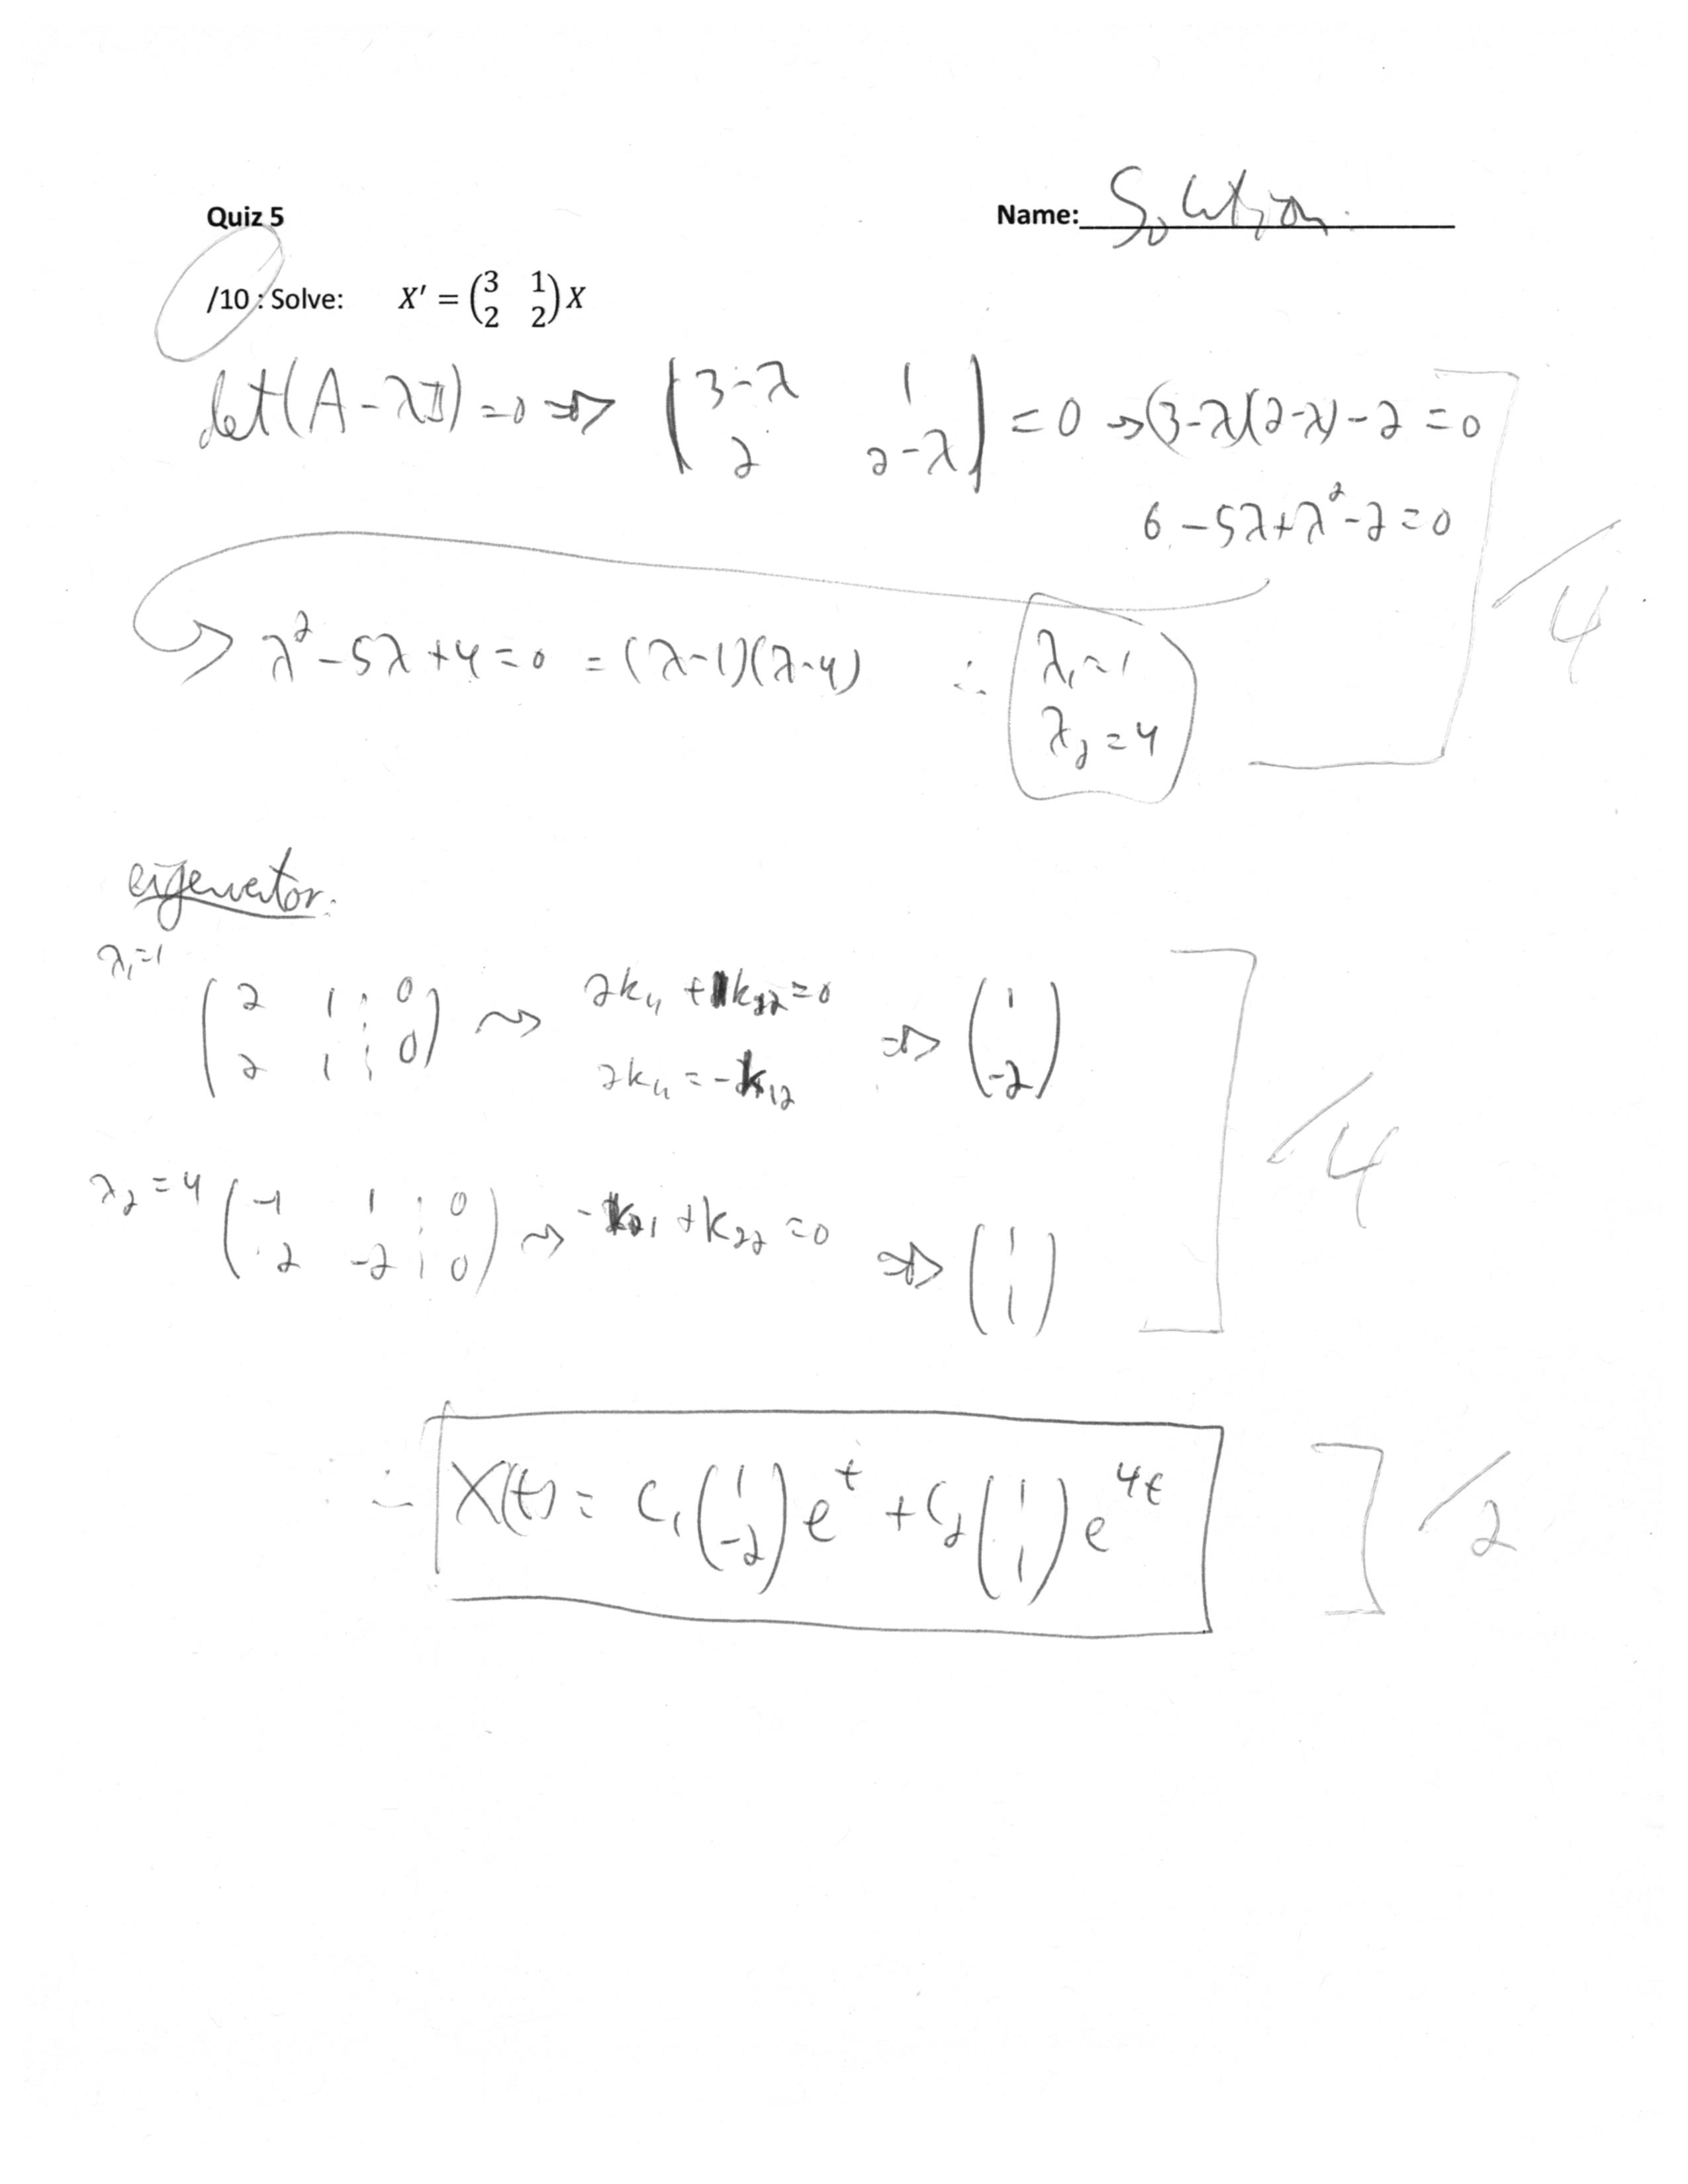 Quiz 5 Name: Solution
/10 : Solve: X′ = (3 1; 2 2) X
det(A - λI) = 0 ⇒ |3-λ 1; 2 2-λ| = 0 → (3-λ)(2-λ) - 2 = 0
6 - 5λ + λ² - 2 = 0
λ² - 5λ + 4 = 0 = (λ-1)(λ-4) ∴ λ₁ = 1
λ₂ = 4
/4
eigenvector:
λ₁ = 1
(2 1 ¦ 0; 2 1 ¦ 0) ⇝ 2k₁₁ + k₁₂ = 0 ⇒ (1; -2)
2k₁₁ = -k₁₂
/4
λ₂ = 4 (-1 1 ¦ 0; 2 -2 ¦ 0) ⇝ -k₂₁ + k₂₂ = 0 ⇒ (1; 1)
∴ X(t) = C₁ (1; -2) e^t + C₂ (1; 1) e^4t /2